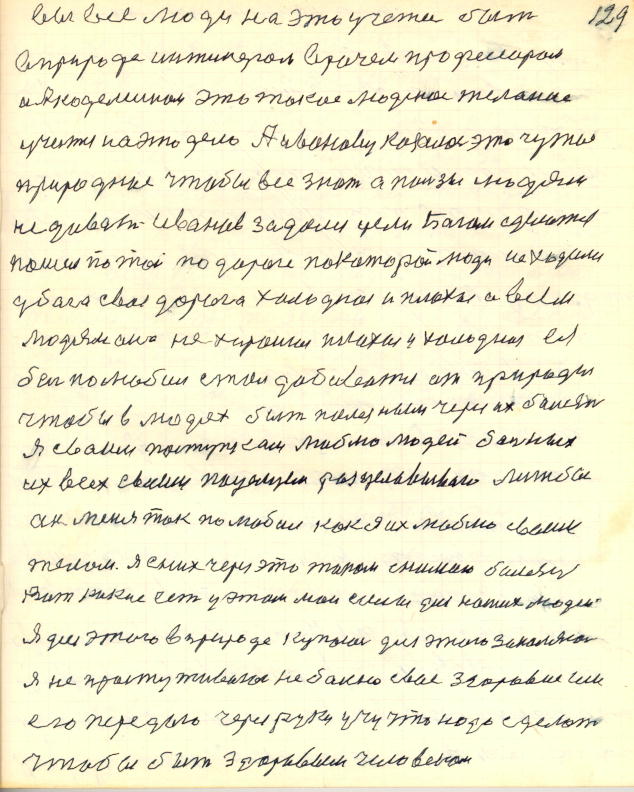 129
вы все люди на это учёны быт
в природе интинером врачем професором
и Якодемиком это такое людское телание
учится на это дело А иванову казалос это чутое
природные чтобы все знат а ползы людям
не дават. иванов задался цели Багом сделатся
пошел по той по дороге по каторой люди не ходили
у бага своя дорога холодноя и плохая а всем
людям она не хороша плохая и холодная ея
бог полюбил стал добиватся от природы
чтобы в людях быт полезным через их болезн
Я своим поступкам люблю людей болных
их всех своим поцелуем разцеловываю литбы
он меня так полюбил как я их люблю своим
телом. я с них через это током снимаю болезн
Вот какие есть у этом мои силы для наших людей
Я для этого в природе купаюс для этого закаляюс
я не простутиваюс не болею свое здоровие им
его передаю через руки учу что надо сделат
чтобы быт здоровым человеком